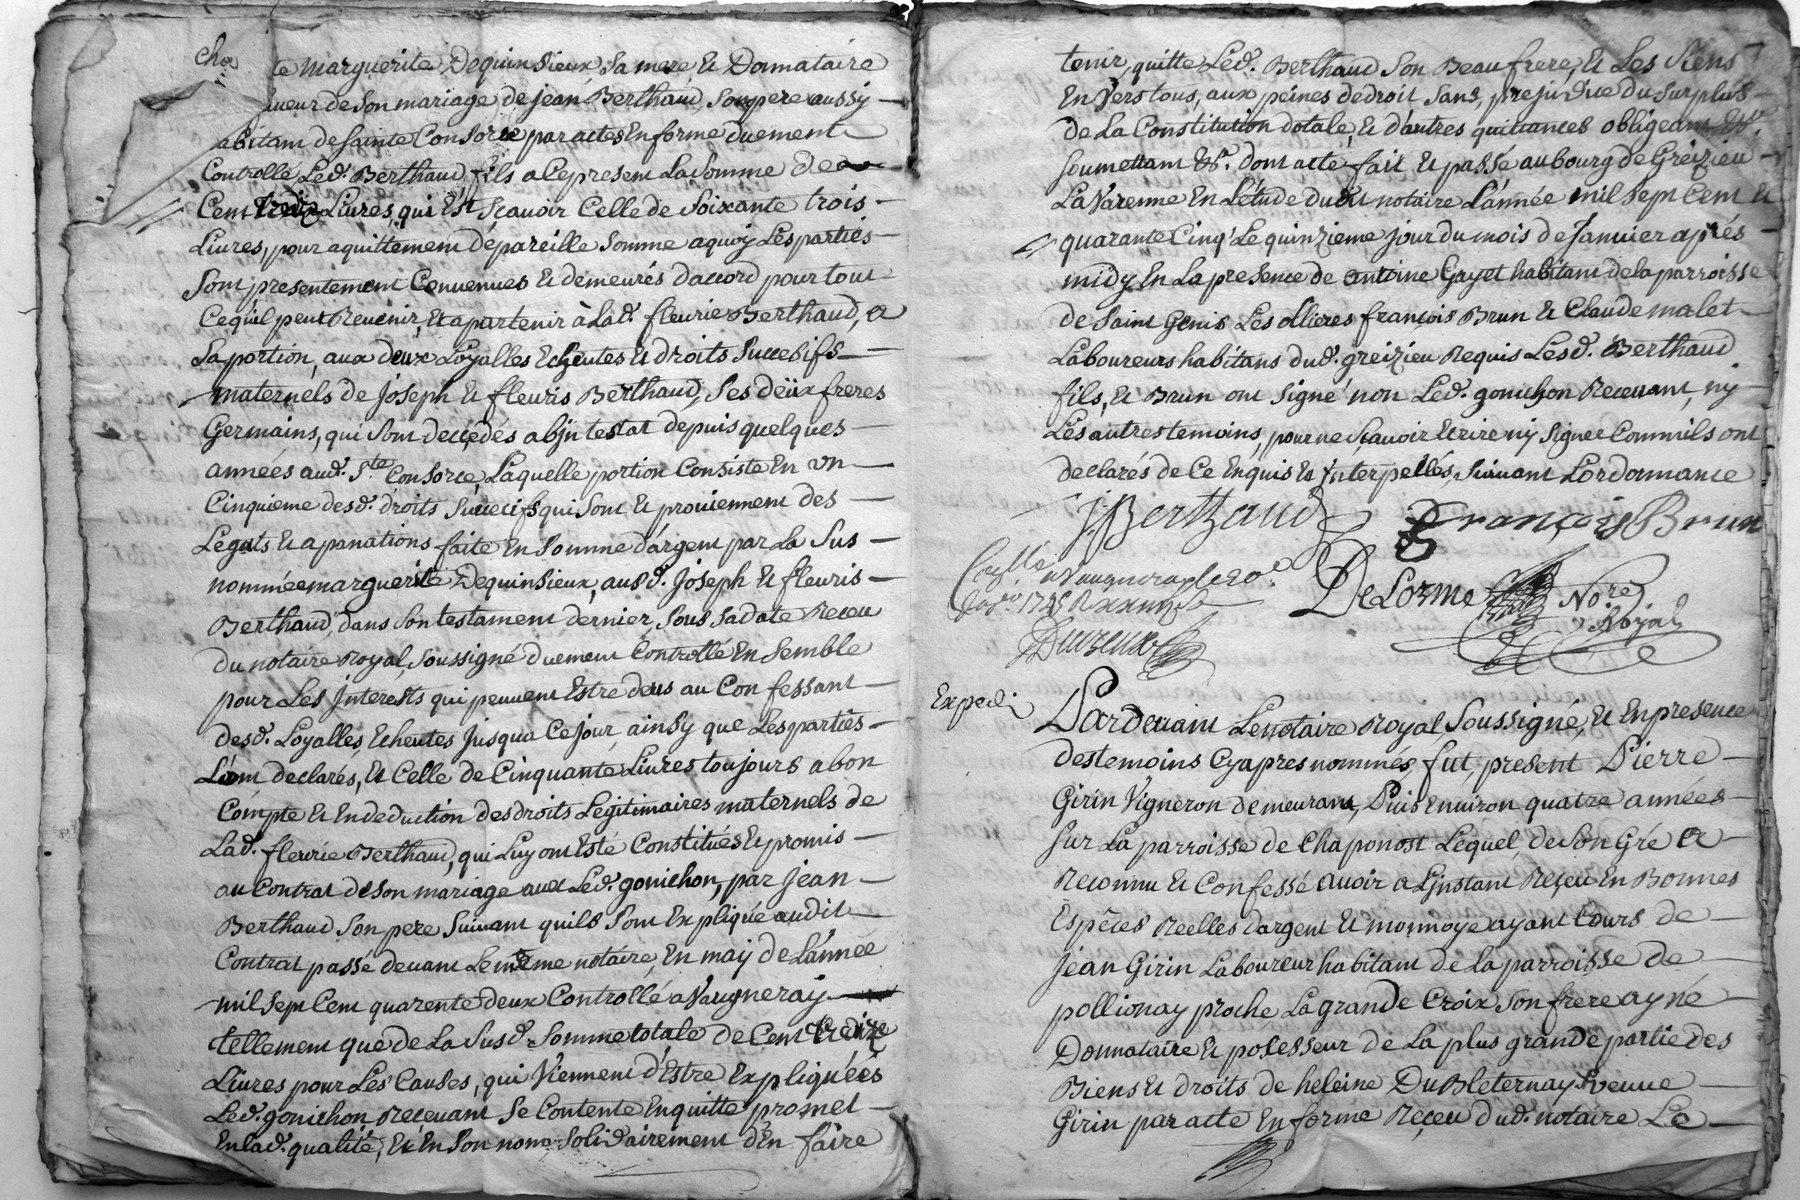 cha
te marguerite Dequinsieux, sa mere, et Donnataire
ueur de son mariage de jean Berthaud, son pere aussy
abitant de sainte Consorce par actes en forme duement
Controllé Led. Berthaud, fils a Ce present La somme de
Cent treize Livres, qui Est scavoir Celle de soixante trois
Livres, pour aquittement de pareille somme a quoy Les parties
sont presentement Convenues et demeurés d'accord pour tout
Ce qu'il peut Revenir, et apartenir à Lad. fleurie Berthaud, a
sa portion, aux deux Loyalles Echeutes et droits successifs
maternels de Joseph et fleuris Berthaud, ses deüx freres
Germains, qui sont decedés abjntestat depuis quelques
années aud. Ste Consorce, Laquelle portion Consiste En un
Cinquieme desd. droits successifs qui sont et proviennent des
Legats et apanations faite en somme d'argent par La sus
nommée marguerite Dequinsieux, ausd. Joseph et fleuris
Berthaud, dans son testament dernier sous sa date Receu
du notaire Royal, soussigné duement Controllé Ensemble
pour Les jnterests qui peuvent Estre deus au Confessant
desd. Loyalles Echeutes jusqua Ce jour, ainsy que Les parties
L'ont declarés, Et Celle de Cinquante Livres toujours a bon
Compte et En deduction des droits Legitimaires maternels de
Lad. fleurie Berthaud, qui Luy ont Esté Constitués et promis
au Contrat de son mariage avec Led. gonichon, par jean
Berthaud son pere suivant quils sont Expliqué audit
Contrat passé devant Le mesme notaire, En may de L'année
mil sept Cent quarente deux Controllé a Vaugneray
tellement que de La susd. somme totale de Cent treize
Livres pour Les Causes, qui Viennent d'Estre Expliquées
Led. gonichon Recevant se Contente En quitte promet
En lad. qualité, Et En son nom solidairement d'En faire
tenir, quitte Led. Berthaud son Beaufrere, et Les siens
En Vers tous, aux peines de droit sans, prejudice du surplus
de La Constitution dotale, et d'autres quittances obligeant
soumettant &c. dont acte fait et passé au bourg de Greizieu
La Varenne En L'étude dudit notaire L'année mil sept Cent et
quarante Cinq Le quinzieme jour du mois de Janvier aprés
midy En La presence de antoine Gayet habitant de la parroisse
de saint Genis Les ollieres françois Brun et Claude malet
Laboureurs habitans dud. greizieu Requis Lesd. Berthaud
fils, et Brun ont signé non Led. gonichon Recevant, ny
Les autres temoins, pour ne scavoir Ecrire ny signer Comm'ils ont
declarés de Ce Enquis et jnterpellés, suivant L'ordonnance
J Berthaud
François Brun
DeLorme Nore
Royal
1745
Expedi
Pardevant Le notaire Royal soussigné, et En presence
des temoins Cyapres nommés, fut present Pierre
Girin Vigneron demeurant, Puis Environ quatre années
sur La parroisse de Chaponost Lequel, de son Gré a
Reconnu et Confessé avoir a Ljnstant Reçeu En Bonnes
Espéces Réelles d'argent et monnoye ayant Cours de
jean Girin Laboureur habitant de La parroisse de
pollionay proche La grande Croix son frere ayné
Donnataire et possesseur de La plus grande partie des
Biens et droits de heleine DuBleternay veuve
Girin par acte En forme Reçeu dud. notaire Le